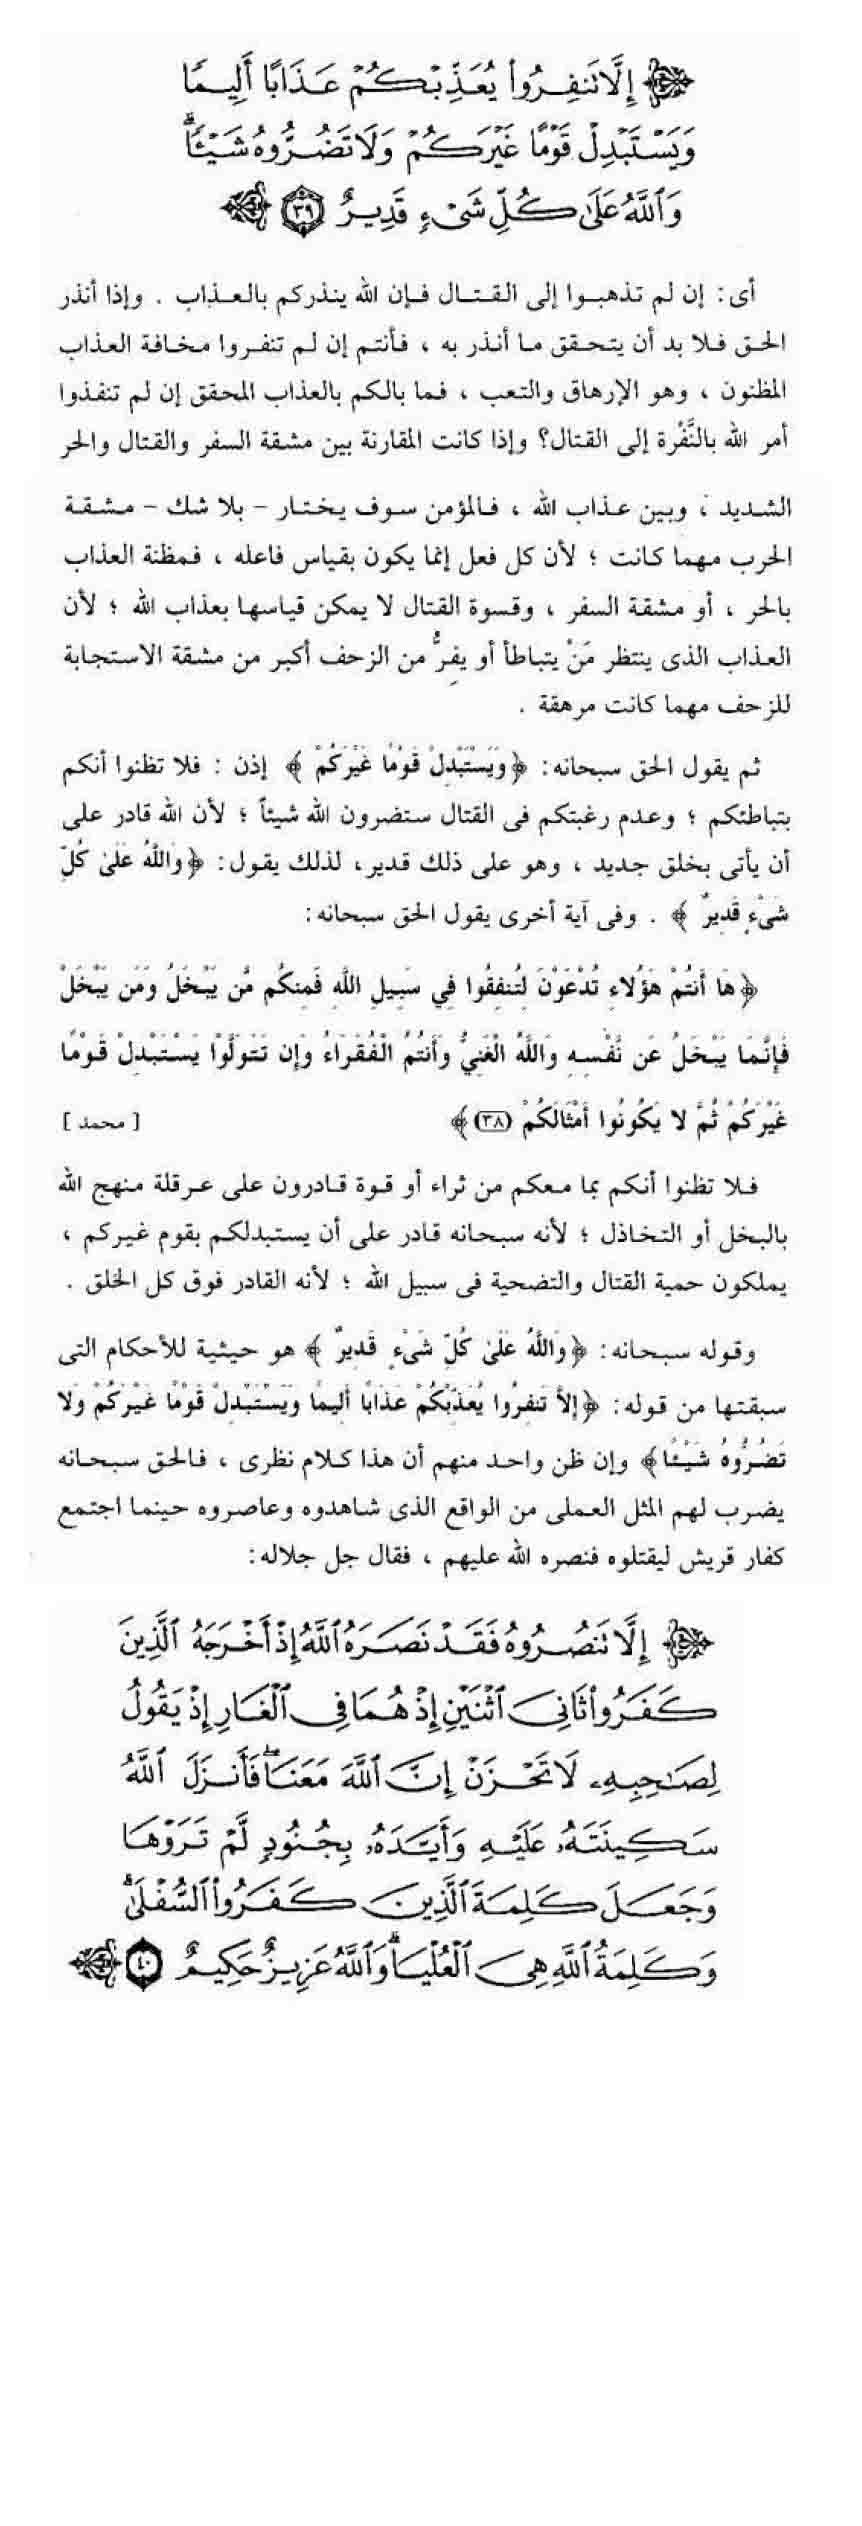 إِلَّا تَنفِرُوا۟ يُعَذِّبْكُمْ عَذَابًا أَلِيمًا
وَيَسْتَبْدِلْ قَوْمًا غَيْرَكُمْ وَلَا تَضُرُّوهُ شَيْـًٔا ۗ
وَٱللَّهُ عَلَىٰ كُلِّ شَىْءٍ قَدِيرٌ ٣٩
أى : إن لم تذهبوا إلى القتال فإن الله ينذركم بالعذاب . وإذا أنذر
الحق فلا بد أن يتحقق ما أنذر به ، فأنتم إن لم تنفروا مخافة العذاب
المظنون ، وهو الإرهاق والتعب ، فما بالكم بالعذاب المحقق إن لم تنفذوا
أمر الله بالنَّفْرة إلى القتال؟ وإذا كانت المقارنة بين مشقة السفر والقتال والحر
الشديد ، وبين عذاب الله ، فالمؤمن سوف يختار – بلا شك – مشقة
الحرب مهما كانت ؛ لأن كل فعل إنما يكون بقياس فاعله ، فمظنة العذاب
بالحر ، أو مشقة السفر ، وقسوة القتال لا يمكن قياسها بعذاب الله ؛ لأن
العذاب الذى ينتظر مَنْ يتباطأ أو يفِرُّ من الزحف أكبر من مشقة الاستجابة
للزحف مهما كانت مرهقة .
ثم يقول الحق سبحانه: ﴿ وَيَسْتَبْدِلْ قَوْمًا غَيْرَكُمْ ﴾ إذن : فلا تظنوا أنكم
بتباطئكم ؛ وعدم رغبتكم فى القتال ستضرون الله شيئاً ؛ لأن الله قادر على
أن يأتى بخلق جديد ، وهو على ذلك قدير، لذلك يقول: ﴿ وَاللَّهُ عَلَىٰ كُلِّ
شَىْءٍ قَدِيرٌ ﴾ . وفى آية أخرى يقول الحق سبحانه:
﴿ هَا أَنتُمْ هَؤُلاءِ تُدْعَوْنَ لِتُنفِقُوا فِي سَبِيلِ اللَّهِ فَمِنكُم مَّن يَبْخَلُ وَمَن يَبْخَلْ
فَإِنَّمَا يَبْخَلُ عَن نَّفْسِهِ وَاللَّهُ الْغَنِيُّ وَأَنتُمُ الْفُقَرَاءُ وَإِن تَتَوَلَّوْا يَسْتَبْدِلْ قَوْمًا
غَيْرَكُمْ ثُمَّ لا يَكُونُوا أَمْثَالَكُمْ (٣٨) ﴾ [ محمد ]
فلا تظنوا أنكم بما معكم من ثراء أو قوة قادرون على عرقلة منهج الله
بالبخل أو التخاذل ؛ لأنه سبحانه قادر على أن يستبدلكم بقوم غيركم ،
يملكون حمية القتال والتضحية فى سبيل الله ؛ لأنه القادر فوق كل الخلق .
وقوله سبحانه: ﴿ وَاللَّهُ عَلَىٰ كُلِّ شَىْءٍ قَدِيرٌ ﴾ هو حيثية للأحكام التى
سبقتها من قوله: ﴿ إِلاَّ تَنفِرُوا يُعَذِّبْكُمْ عَذَابًا أَلِيمًا وَيَسْتَبْدِلْ قَوْمًا غَيْرَكُمْ وَلا
تَضُرُّوهُ شَيْئًا ﴾ وإن ظن واحد منهم أن هذا كلام نظرى ، فالحق سبحانه
يضرب لهم المثل العملى من الواقع الذى شاهدوه وعاصروه حينما اجتمع
كفار قريش ليقتلوه فنصره الله عليهم ، فقال جل جلاله:
إِلَّا تَنصُرُوهُ فَقَدْ نَصَرَهُ ٱللَّهُ إِذْ أَخْرَجَهُ ٱلَّذِينَ
كَفَرُوا۟ ثَانِىَ ٱثْنَيْنِ إِذْ هُمَا فِى ٱلْغَارِ إِذْ يَقُولُ
لِصَـٰحِبِهِۦ لَا تَحْزَنْ إِنَّ ٱللَّهَ مَعَنَا ۖ فَأَنزَلَ ٱللَّهُ
سَكِينَتَهُۥ عَلَيْهِ وَأَيَّدَهُۥ بِجُنُودٍ لَّمْ تَرَوْهَا
وَجَعَلَ كَلِمَةَ ٱلَّذِينَ كَفَرُوا۟ ٱلسُّفْلَىٰ ۗ
وَكَلِمَةُ ٱللَّهِ هِىَ ٱلْعُلْيَا ۗ وَٱللَّهُ عَزِيزٌ حَكِيمٌ ٤٠